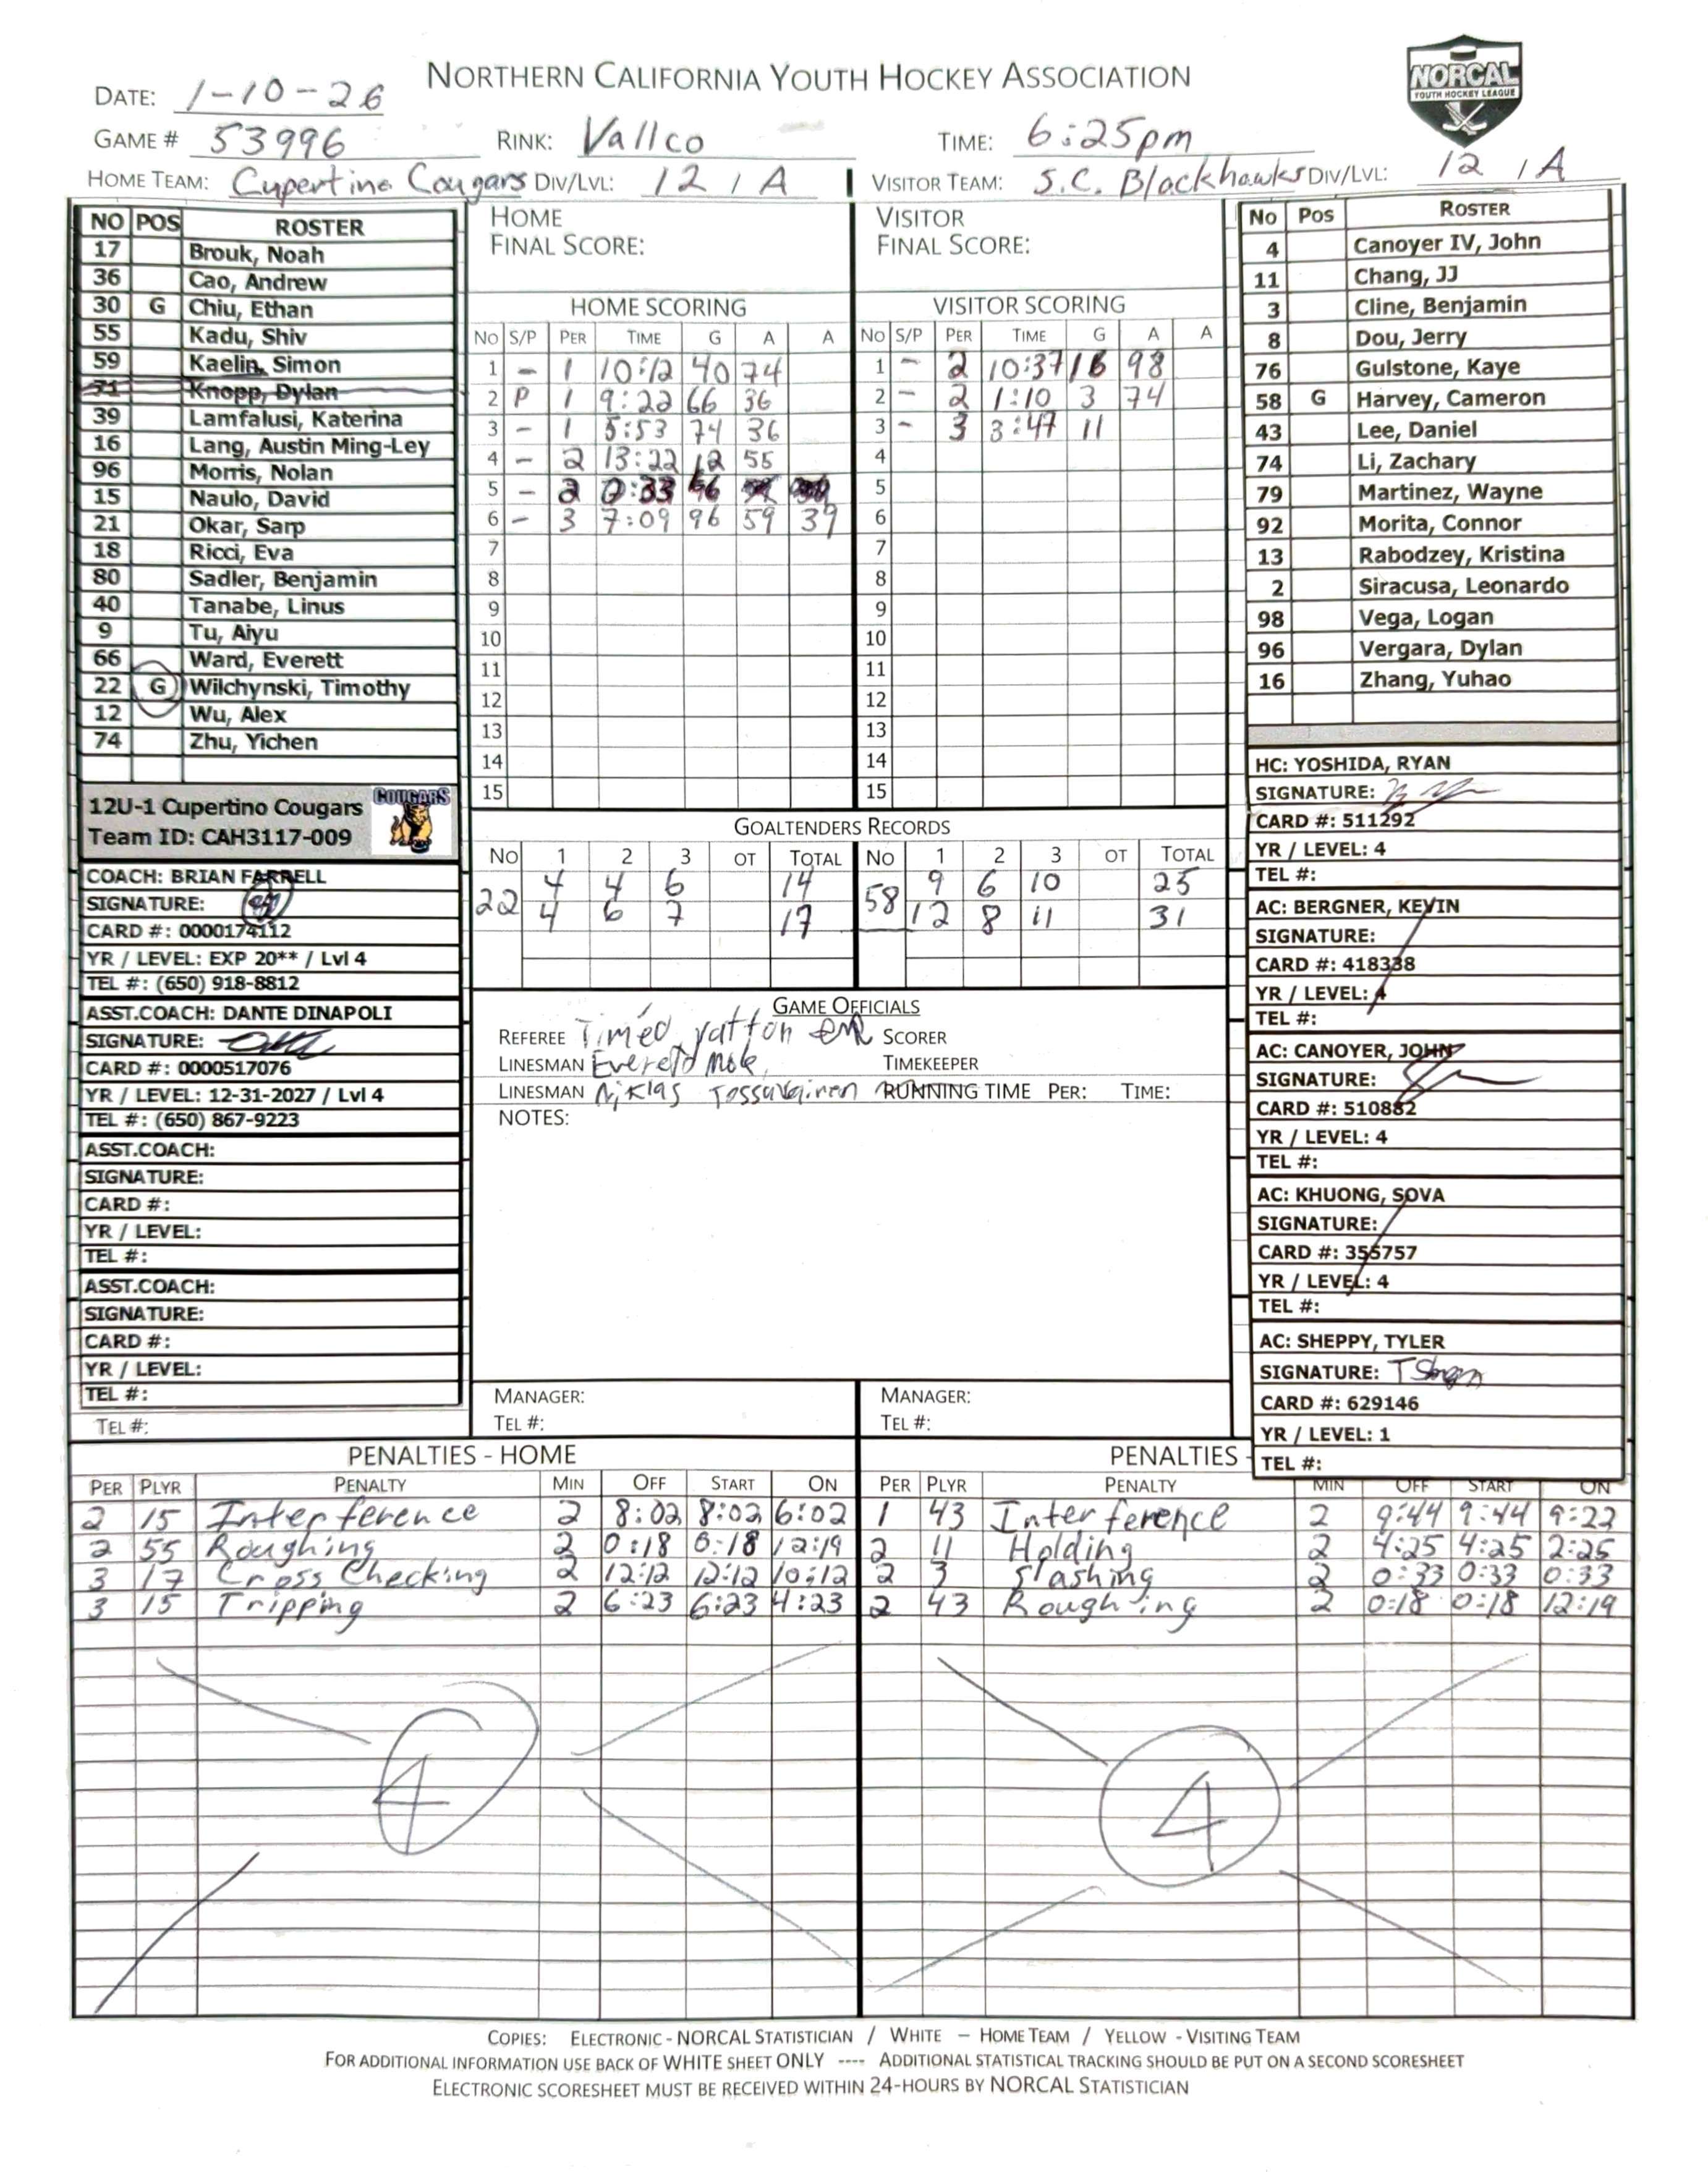 NORTHERN CALIFORNIA YOUTH HOCKEY ASSOCIATION
NORCAL
YOUTH HOCKEY LEAGUE
DATE: 1-10-26
GAME # 53996 RINK: Vallco TIME: 6:25pm
HOME TEAM: Cupertino Cougars DIV/LVL: 12 / A VISITOR TEAM: S.C. Blackhawks DIV/LVL: 12 / A
NO POS ROSTER
17 Brouk, Noah
36 Cao, Andrew
30 G Chiu, Ethan
55 Kadu, Shiv
59 Kaelin, Simon
71 Knopp, Dylan
39 Lamfalusi, Katerina
16 Lang, Austin Ming-Ley
96 Morris, Nolan
15 Naulo, David
21 Okar, Sarp
18 Ricci, Eva
80 Sadler, Benjamin
40 Tanabe, Linus
9 Tu, Aiyu
66 Ward, Everett
22 G Wilchynski, Timothy
12 Wu, Alex
74 Zhu, Yichen
12U-1 Cupertino Cougars
Team ID: CAH3117-009
COUGARS
COACH: BRIAN FARRELL
SIGNATURE:
CARD #: 0000174112
YR / LEVEL: EXP 20** / Lvl 4
TEL #: (650) 918-8812
ASST.COACH: DANTE DINAPOLI
SIGNATURE:
CARD #: 0000517076
YR / LEVEL: 12-31-2027 / Lvl 4
TEL #: (650) 867-9223
ASST.COACH:
SIGNATURE:
CARD #:
YR / LEVEL:
TEL #:
ASST.COACH:
SIGNATURE:
CARD #:
YR / LEVEL:
TEL #:
TEL #:
HOME
FINAL SCORE:
HOME SCORING
No S/P PER TIME G A A
1 - 1 10:12 40 74
2 P 1 9:22 66 36
3 - 1 5:53 74 36
4 - 2 13:22 12 55
5 - 2 0:33 66
6 - 3 7:09 96 59 39
7
8
9
10
11
12
13
14
15
VISITOR
FINAL SCORE:
VISITOR SCORING
No S/P PER TIME G A A
1 - 2 10:37 16 98
2 - 2 1:10 3 74
3 - 3 3:47 11
4
5
6
7
8
9
10
11
12
13
14
15
GOALTENDERS RECORDS
No 1 2 3 OT TOTAL No 1 2 3 OT TOTAL
22 4 4 6 14 58 9 6 10 25
4 6 7 17 12 8 11 31
GAME OFFICIALS
REFEREE SCORER
LINESMAN TIMEKEEPER
LINESMAN Niklas RUNNING TIME PER: TIME:
NOTES:
MANAGER: MANAGER:
TEL #: TEL #:
No Pos ROSTER
4 Canoyer IV, John
11 Chang, JJ
3 Cline, Benjamin
8 Dou, Jerry
76 Gulstone, Kaye
58 G Harvey, Cameron
43 Lee, Daniel
74 Li, Zachary
79 Martinez, Wayne
92 Morita, Connor
13 Rabodzey, Kristina
2 Siracusa, Leonardo
98 Vega, Logan
96 Vergara, Dylan
16 Zhang, Yuhao
HC: YOSHIDA, RYAN
SIGNATURE:
CARD #: 511292
YR / LEVEL: 4
TEL #:
AC: BERGNER, KEVIN
SIGNATURE:
CARD #: 418338
YR / LEVEL: 4
TEL #:
AC: CANOYER, JOHN
SIGNATURE:
CARD #: 510882
YR / LEVEL: 4
TEL #:
AC: KHUONG, SOVA
SIGNATURE:
CARD #: 355757
YR / LEVEL: 4
TEL #:
AC: SHEPPY, TYLER
SIGNATURE:
CARD #: 629146
YR / LEVEL: 1
TEL #:
PENALTIES - HOME
PER PLYR PENALTY MIN OFF START ON
2 15 Interference 2 8:02 8:02 6:02
2 55 Roughing 2 0:18 0:18 12:19
3 17 Cross Checking 2 12:12 12:12 10:12
3 15 Tripping 2 6:23 6:23 4:23
4
PENALTIES -
PER PLYR PENALTY MIN OFF START ON
1 43 Interference 2 9:44 9:44 9:22
2 11 Holding 2 4:25 4:25 2:25
2 3 Slashing 2 0:33 0:33 0:33
2 43 Roughing 2 0:18 0:18 12:19
4
COPIES: ELECTRONIC - NORCAL STATISTICIAN / WHITE – HOME TEAM / YELLOW - VISITING TEAM
FOR ADDITIONAL INFORMATION USE BACK OF WHITE SHEET ONLY ---- ADDITIONAL STATISTICAL TRACKING SHOULD BE PUT ON A SECOND SCORESHEET
ELECTRONIC SCORESHEET MUST BE RECEIVED WITHIN 24-HOURS BY NORCAL STATISTICIAN